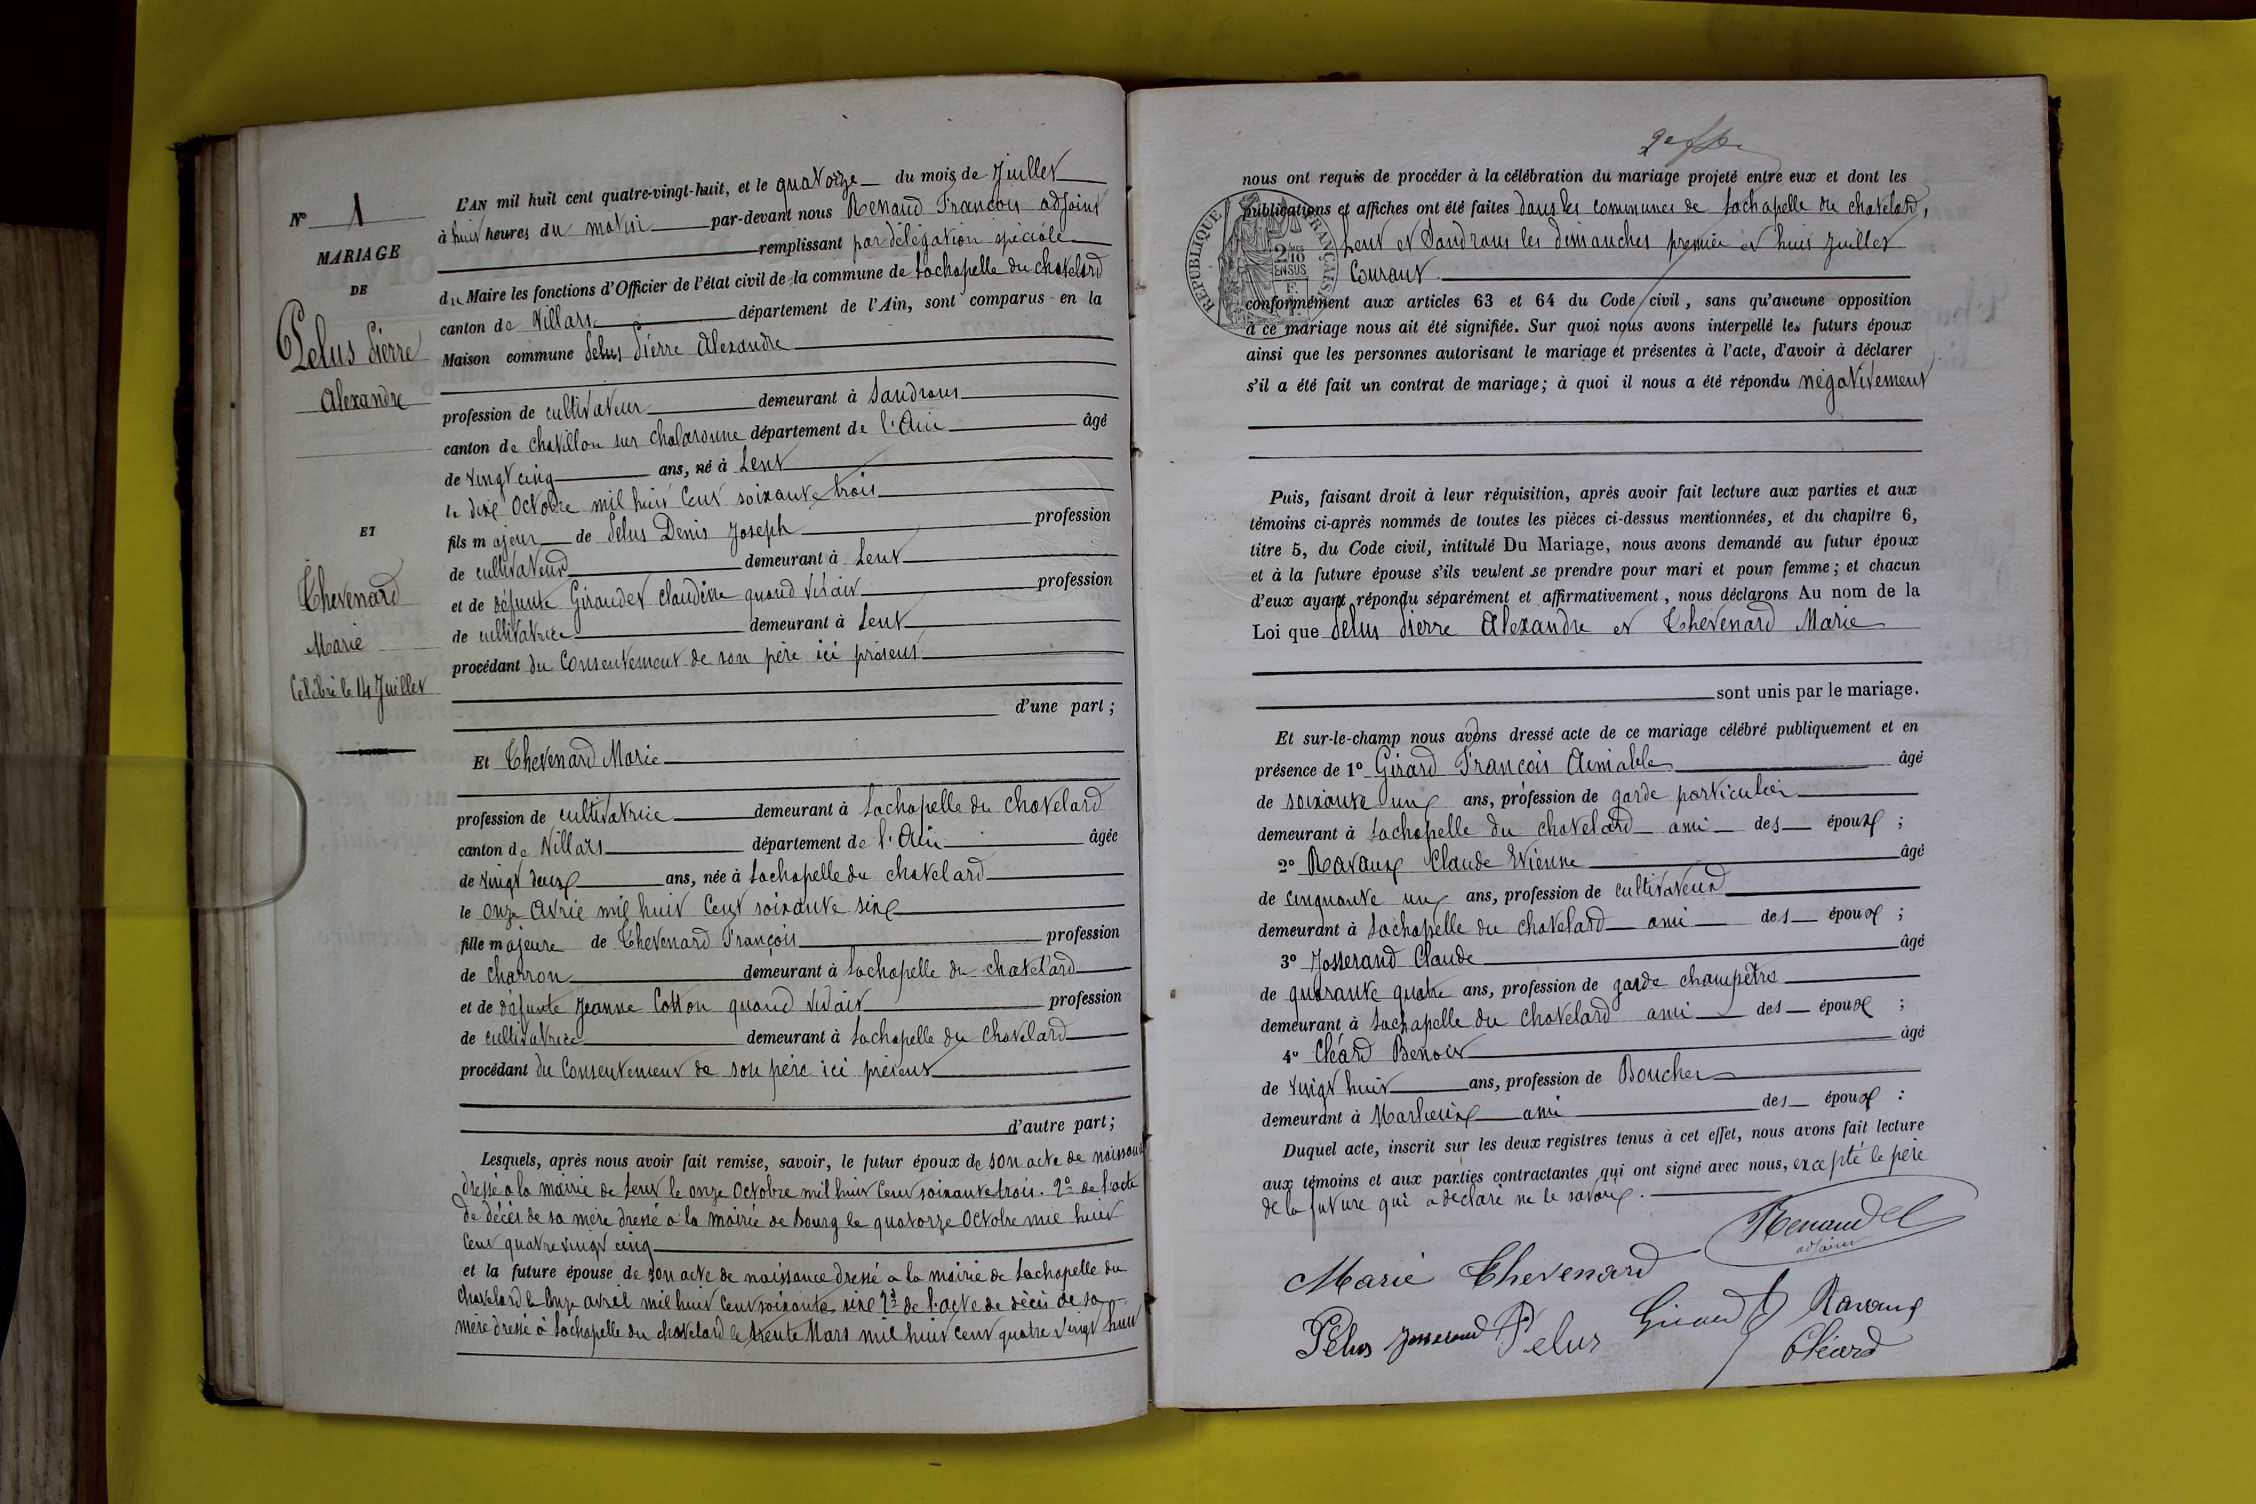 N° 1
MARIAGE
DE
Pelus Pierre
Alexandre
ET
Thevenard
Marie
Célébré le 14 Juillet
L'AN mil huit cent quatre-vingt-huit, et le quatorze du mois de Juillet
à huit heures du matin par-devant nous Renaud François adjoint
remplissant par délégation spéciale
du Maire les fonctions d'Officier de l'état civil de la commune de Lachapelle du chatelard
canton de Villars département de l'Ain, sont comparus en la
Maison commune Pelus Pierre Alexandre
profession de cultivateur demeurant à Sandrans
canton de chatillon sur chalaronne département de l'Ain âgé
de vingt cinq ans, né à Lent
le dix Octobre mil huit Cent soixante trois
fils majeur de Pelus Denis Joseph profession
de cultivateur demeurant à Lent
et de défunte Giraudet Claudine quand vivait profession
de cultivatrice demeurant à Lent
procédant du Consentement de son père ici présent
d'une part ;
Et Thevenard Marie
profession de cultivatrice demeurant à Lachapelle du Chatelard
canton de Villars département de l'Ain âgée
de vingt deux ans, née à Lachapelle du chatelard
le onze Avril mil huit Cent soixante six
fille majeure de Thevenard François profession
de charron demeurant à Lachapelle du chatelard
et de défunte Jeanne Cotton quand vivait profession
de cultivatrice demeurant à Lachapelle du Chatelard
procédant du Consentement de son père ici présent
d'autre part ;
Lesquels, après nous avoir fait remise, savoir, le futur époux de son acte de naissance
dressé à la mairie de Lent le onze Octobre mil huit Cent soixante trois. 2° de l'acte
de décès de sa mère dressé à la mairie de Bourg le quatorze Octobre mil huit
Cent quatre vingt cinq
et la future épouse de son acte de naissance dressé a la mairie de Lachapelle du
Chatelard le Onze avril mil huit Cent soixante six 2° de l'acte de décès de sa
mère dressé à Lachapelle du chatelard le trente Mars mil huit cent quatre vingt huit
nous ont requis de procéder à la célébration du mariage projeté entre eux et dont les
publications et affiches ont été faites dans les communes de Lachapelle du chatelard,
Lent et Sandrans les dimanches premier et huit Juillet
Courant
RÉPUBLIQUE FRANÇAISE
2/10 EN SUS
conformément aux articles 63 et 64 du Code civil, sans qu'aucune opposition
à ce mariage nous ait été signifiée. Sur quoi nous avons interpellé les futurs époux
ainsi que les personnes autorisant le mariage et présentes à l'acte, d'avoir à déclarer
s'il a été fait un contrat de mariage; à quoi il nous a été répondu négativement
Puis, faisant droit à leur réquisition, après avoir fait lecture aux parties et aux
témoins ci-après nommés de toutes les pièces ci-dessus mentionnées, et du chapitre 6,
titre 5, du Code civil, intitulé Du Mariage, nous avons demandé au futur époux
et à la future épouse s'ils veulent se prendre pour mari et pour femme ; et chacun
d'eux ayant répondu séparément et affirmativement, nous déclarons Au nom de la
Loi que Pelus Pierre Alexandre et Thevenard Marie
sont unis par le mariage.
Et sur-le-champ nous avons dressé acte de ce mariage célébré publiquement et en
présence de 1° Girard François Aimable âgé
de soixante un ans, profession de garde particulier
demeurant à Lachapelle du chatelard ami des époux ;
2° Ravaux Claude Etienne âgé
de cinquante un ans, profession de cultivateur
demeurant à Lachapelle du chatelard ami des époux ;
3° Josserand Claude âgé
de quarante quatre ans, profession de garde champêtre
demeurant à Lachapelle du Chatelard ami des époux ;
4° Cléard Benoit âgé
de vingt huit ans, profession de Boucher
demeurant à Marlieux ami des époux :
Duquel acte, inscrit sur les deux registres tenus à cet effet, nous avons fait lecture
aux témoins et aux parties contractantes qui ont signé avec nous, excepté le père
de la future qui a déclaré ne le savoir.
Renaud
adjoint
Marie Thevenard
Pelus Josserand Pelus Girard Ravaux
Cléard